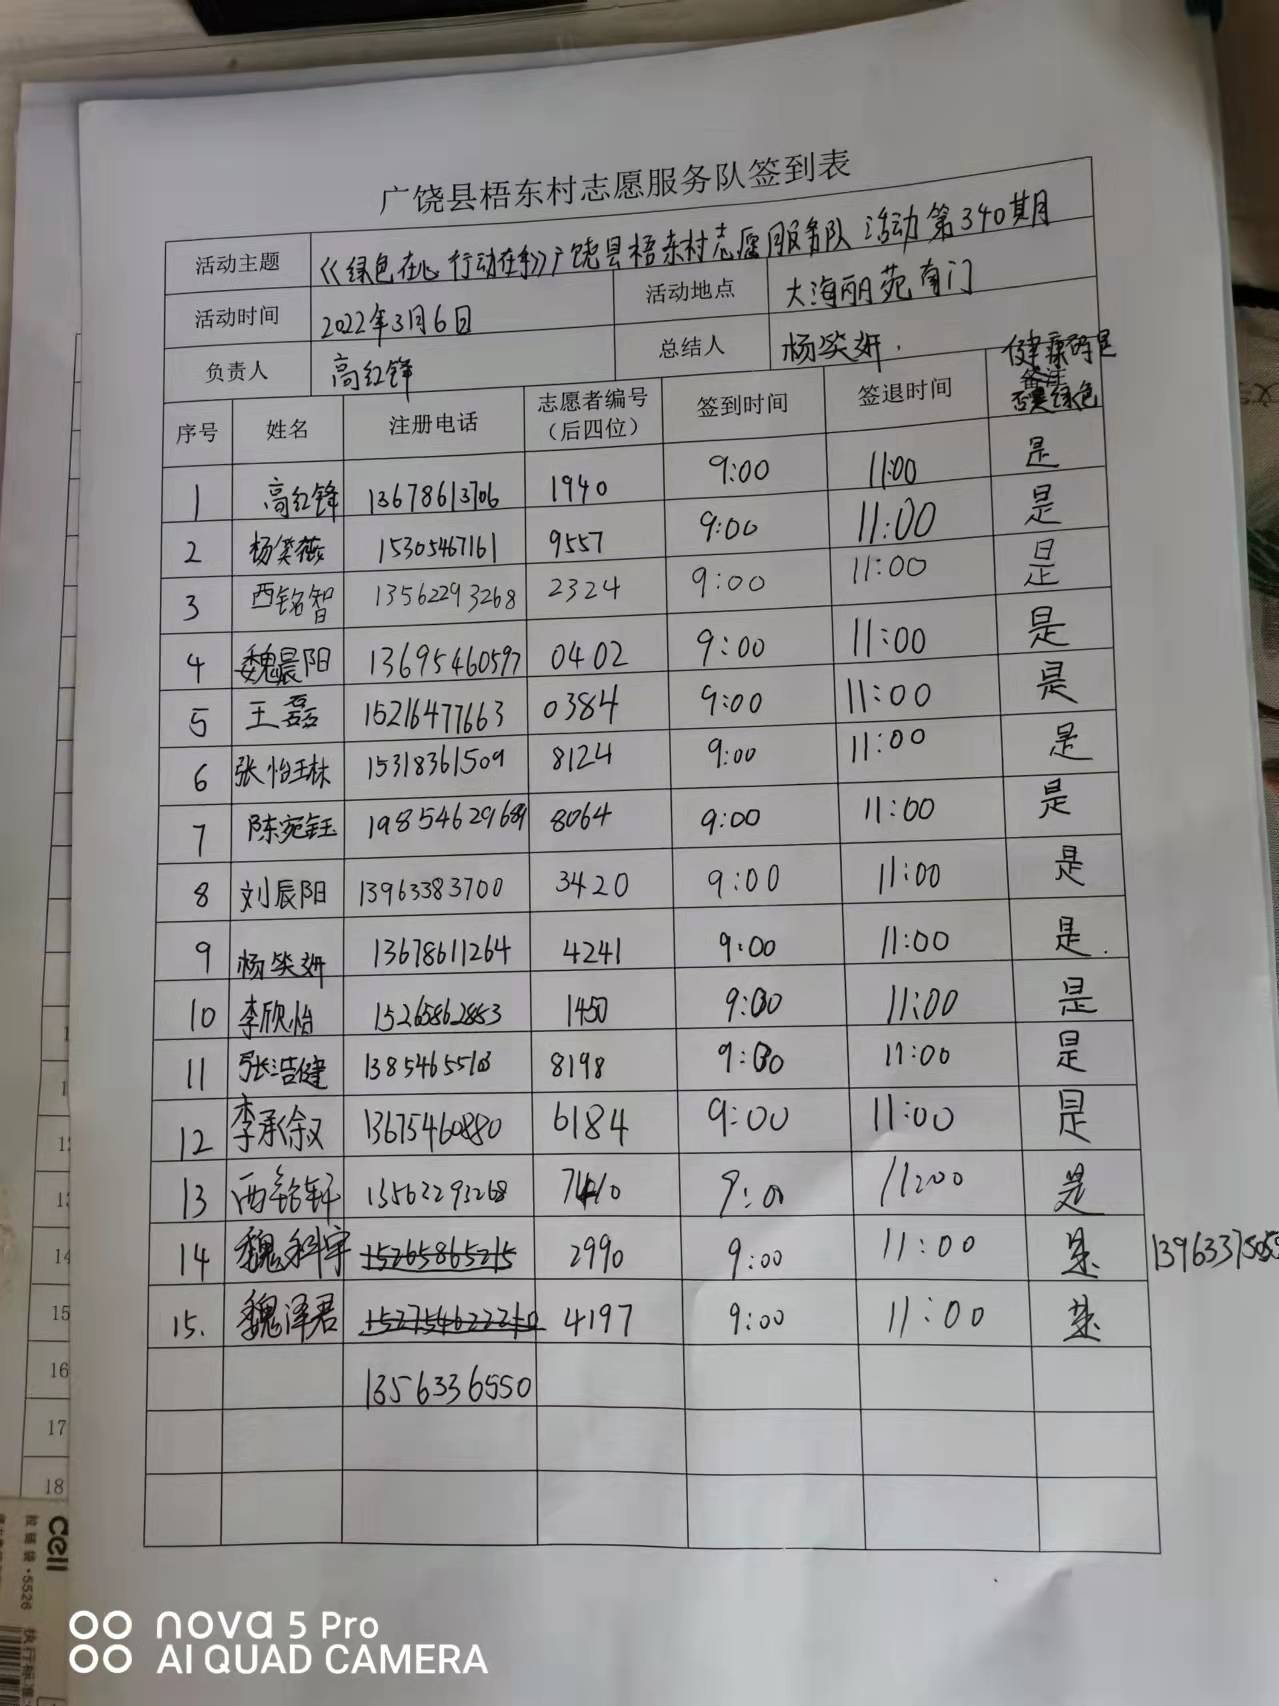 广饶县梧东村志愿服务队签到表
活动主题 《绿色在心 行动在手》广饶县梧东村志愿服务队 活动第340期
活动时间 2022年3月6日 活动地点 大海丽苑南门
负责人 高红锋 总结人 杨笑妍.
序号 姓名 注册电话 志愿者编号（后四位） 签到时间 签退时间 健康码是否是绿色
1 高红锋 13678613706 1940 9:00 11:00 是
2 杨笑薇 15305467161 9557 9:00 11:00 是
3 西铭智 13562293268 2324 9:00 11:00 是
4 魏晨阳 13695460597 0402 9:00 11:00 是
5 王磊 15216477663 0384 9:00 11:00 是
6 张怡琳 15318361509 8124 9:00 11:00 是
7 陈宛钰 19854629689 8064 9:00 11:00 是
8 刘辰阳 13963383700 3420 9:00 11:00 是
9 杨笑妍 13678611264 4241 9:00 11:00 是.
10 李欣怡 15265862883 1450 9:00 11:00 是
11 张浩健 8198 9:00 11:00 是
12 李承叙 13675460880 6184 9:00 11:00 是
13 西铭轩 13562293268 9:00 11:00 是
14 魏科宇 15265865215 2990 9:00 11:00 是
15. 魏泽君 4197 9:00 11:00 是
13563366550
14
15
16
17
18
cell
拉链袋·5526
执行标准
nova 5 Pro
AI QUAD CAMERA